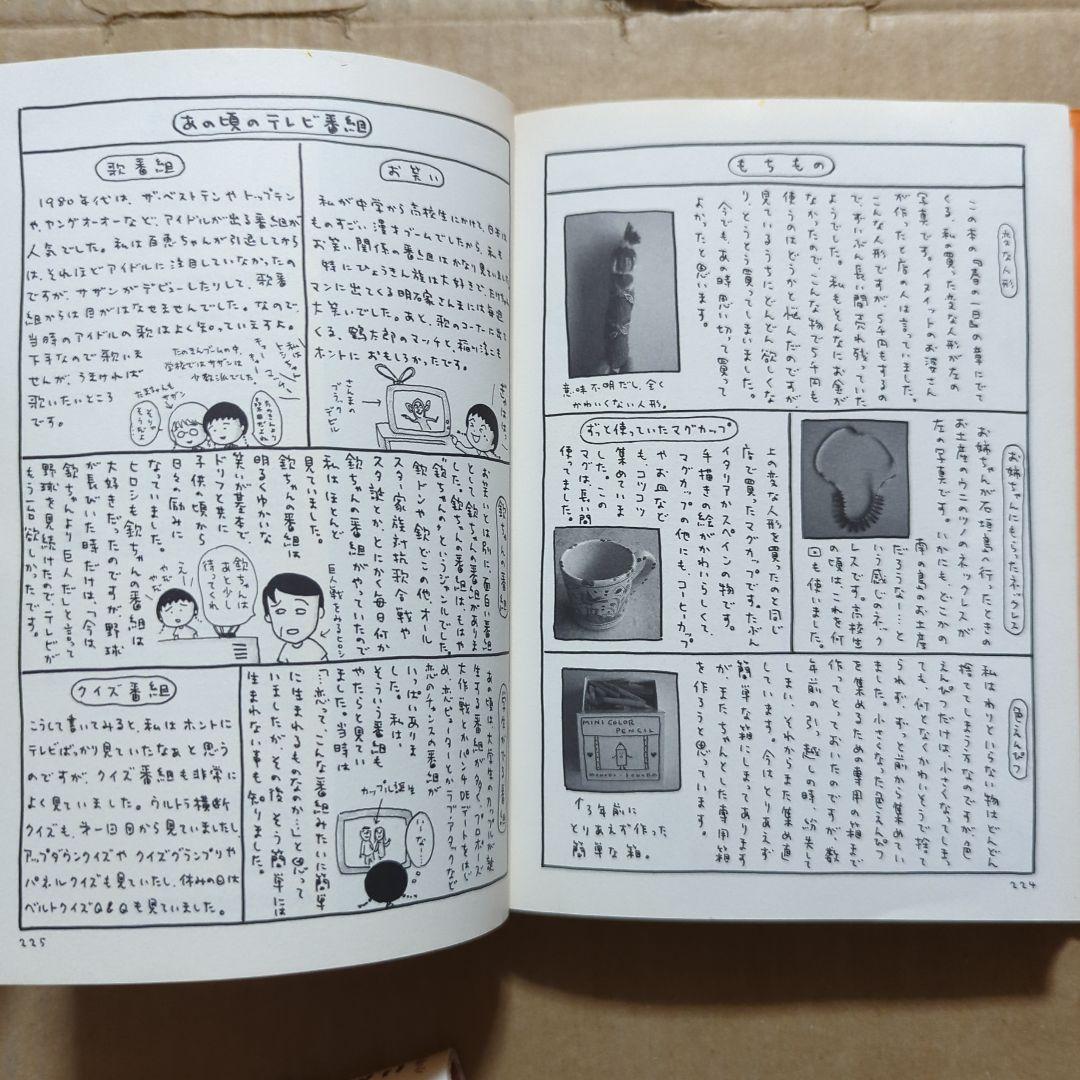 もちもの
変な人形
この本の『春の一日』の章にでて
くる、私の買った変な人形が左の
写真です。イヌイットのお婆さん
が作ったと店の人は言っていました。
こんな人形ですが5千円もするの
で、ずいぶん長い間売れ残っていた
ようでした。私もそんなにお金が
なかったので、こんな物で5千円も
使うのはどうかと悩んだのですが、
見ているうちにどんどん欲しくな
り、とうとう買ってしまいました。
今でも、あの時思い切って買って
よかったと思います。
意味不明だし、全く
かわいくない人形。
お姉ちゃんにもらったネックレス
お姉ちゃんが石垣島へ行ったときの
お土産のウニのツノのネックレスが
左の写真です。いかにも、どこかの
南の島のお土産
だろうなー…と
いう感じのネック
レスです。高校生
の頃はこれを何
回も使いました。
ずっと使っていたマグカップ
上の変な人形を買ったのと同じ
店で買ったマグカップです。たぶん
イタリアかスペインの物です。
手描きの絵がかわいらしくて、
マグカップの他にも、コーヒーカップ
やお皿など
も、コツコツ
集めていま
した。この
マグは、長い間
使ってました。
色えんぴつ
私はわりといらない物はどんどん
捨ててしまう方なのですが、色
えんぴつだけは、小さくなってしまっ
ても、何となくかわいそうで捨て
られず、ずっと前から集めてい
ました。小さくなった色えんぴつ
を集めるための専用の箱まで
作ってとっておいたのですが、数
年前の引っ越しの時、紛失して
しまい、それからまた集め直
しています。今はとりあえず
簡単な箱にしまってあります
が、またちゃんとした専用箱
を作ろうと思っています。
MINI COLOR
PENCIL
↑3年前に
とりあえず作った
簡単な箱。
224
あの頃のテレビ番組
歌番組
1980年代は、ザ・ベストテンやトップテン
やヤングオーオーなど、アイドルが出る番組が
人気でした。私は百恵ちゃんが引退してから
は、それほどアイドルに注目していなかったの
ですが、サザンがデビューしたりして、歌番
組からは目がはなせませんでした。なので、
当時のアイドルの歌はよく知っていますよ。
下手なので歌いま
せんが、うまければ
歌いたいところ
です。
たのきんブームの中、
学校ではサザンは
少数派でした。
私は
トシちゃん
キャー
マッチ
キャー
たまちゃんも
サザン
たのきんより
サザンだよね
そうだよね
お笑い
私が中学から高校生にかけて、日本は
ものすごい漫才ブームでしたから、私も
お笑い関係の番組はかなり見ていました。
特にひょうきん族は大好きで、たけちゃん
マンに出てくる明石家さんまには毎週
大笑いでした。あと、歌のコーナーに出て
くる、鶴太郎のマッチと、稲川淳二も
ホントにおもしろかったです。
さんまの
ブラックデビル
欽ちゃんの番組
お笑いとは別に、面白い番組
として欽ちゃんの番組がありま
した。欽ちゃんの番組は、もはや
“欽ちゃんの”というジャンルでした。
欽ドンや欽どこの他、オール
スター家族対抗歌合戦や
スタ誕とか、とにかく毎日何か
欽ちゃんの番組がやっていたので、
私はほとんど
見ていました。
欽ちゃんの番組は
明るくゆかいな
笑いが基本で、
ドリフと共に
子供の頃から
日々の励みに
なっていました。
ヒロシも欽ちゃんの番組は
大好きだったのですが、野球
が長びいた時だけは、「今は
欽ちゃんより巨人だ」と言って
野球を見続けたので、テレビが
もう一台欲しかったです。
巨人戦をみるヒロシ
欽ちゃんは
あと少し
待ってくれ
えー
やだ
やだ
あの頃は、大学生のカップルが誕
生する番組が多く、プロポーズ
大作戦とかパンチDEデートをはじ
め、ラブアタックなど
恋のチャンスの番組が
いっぱいありま
した。私は、
そういう番組も
やたらと見てい
ました。当時は
「…恋って、こんな番組みたいに簡単
に生まれるものなのか…」と思って
いましたが、その後、そう簡単には
生まれない事も知りました。
カップル誕生
いーなー…
クイズ番組
こうして書いてみると、私はホントに
テレビばっかり見ていたなぁと思う
のですが、クイズ番組も非常に
よく見ていました。ウルトラ横断
クイズも、第一回目から見ていましたし、
アップダウンクイズや クイズグランプリや
パネルクイズも見ていたし、休みの日は
ベルトクイズQ&Qも見ていました。
225